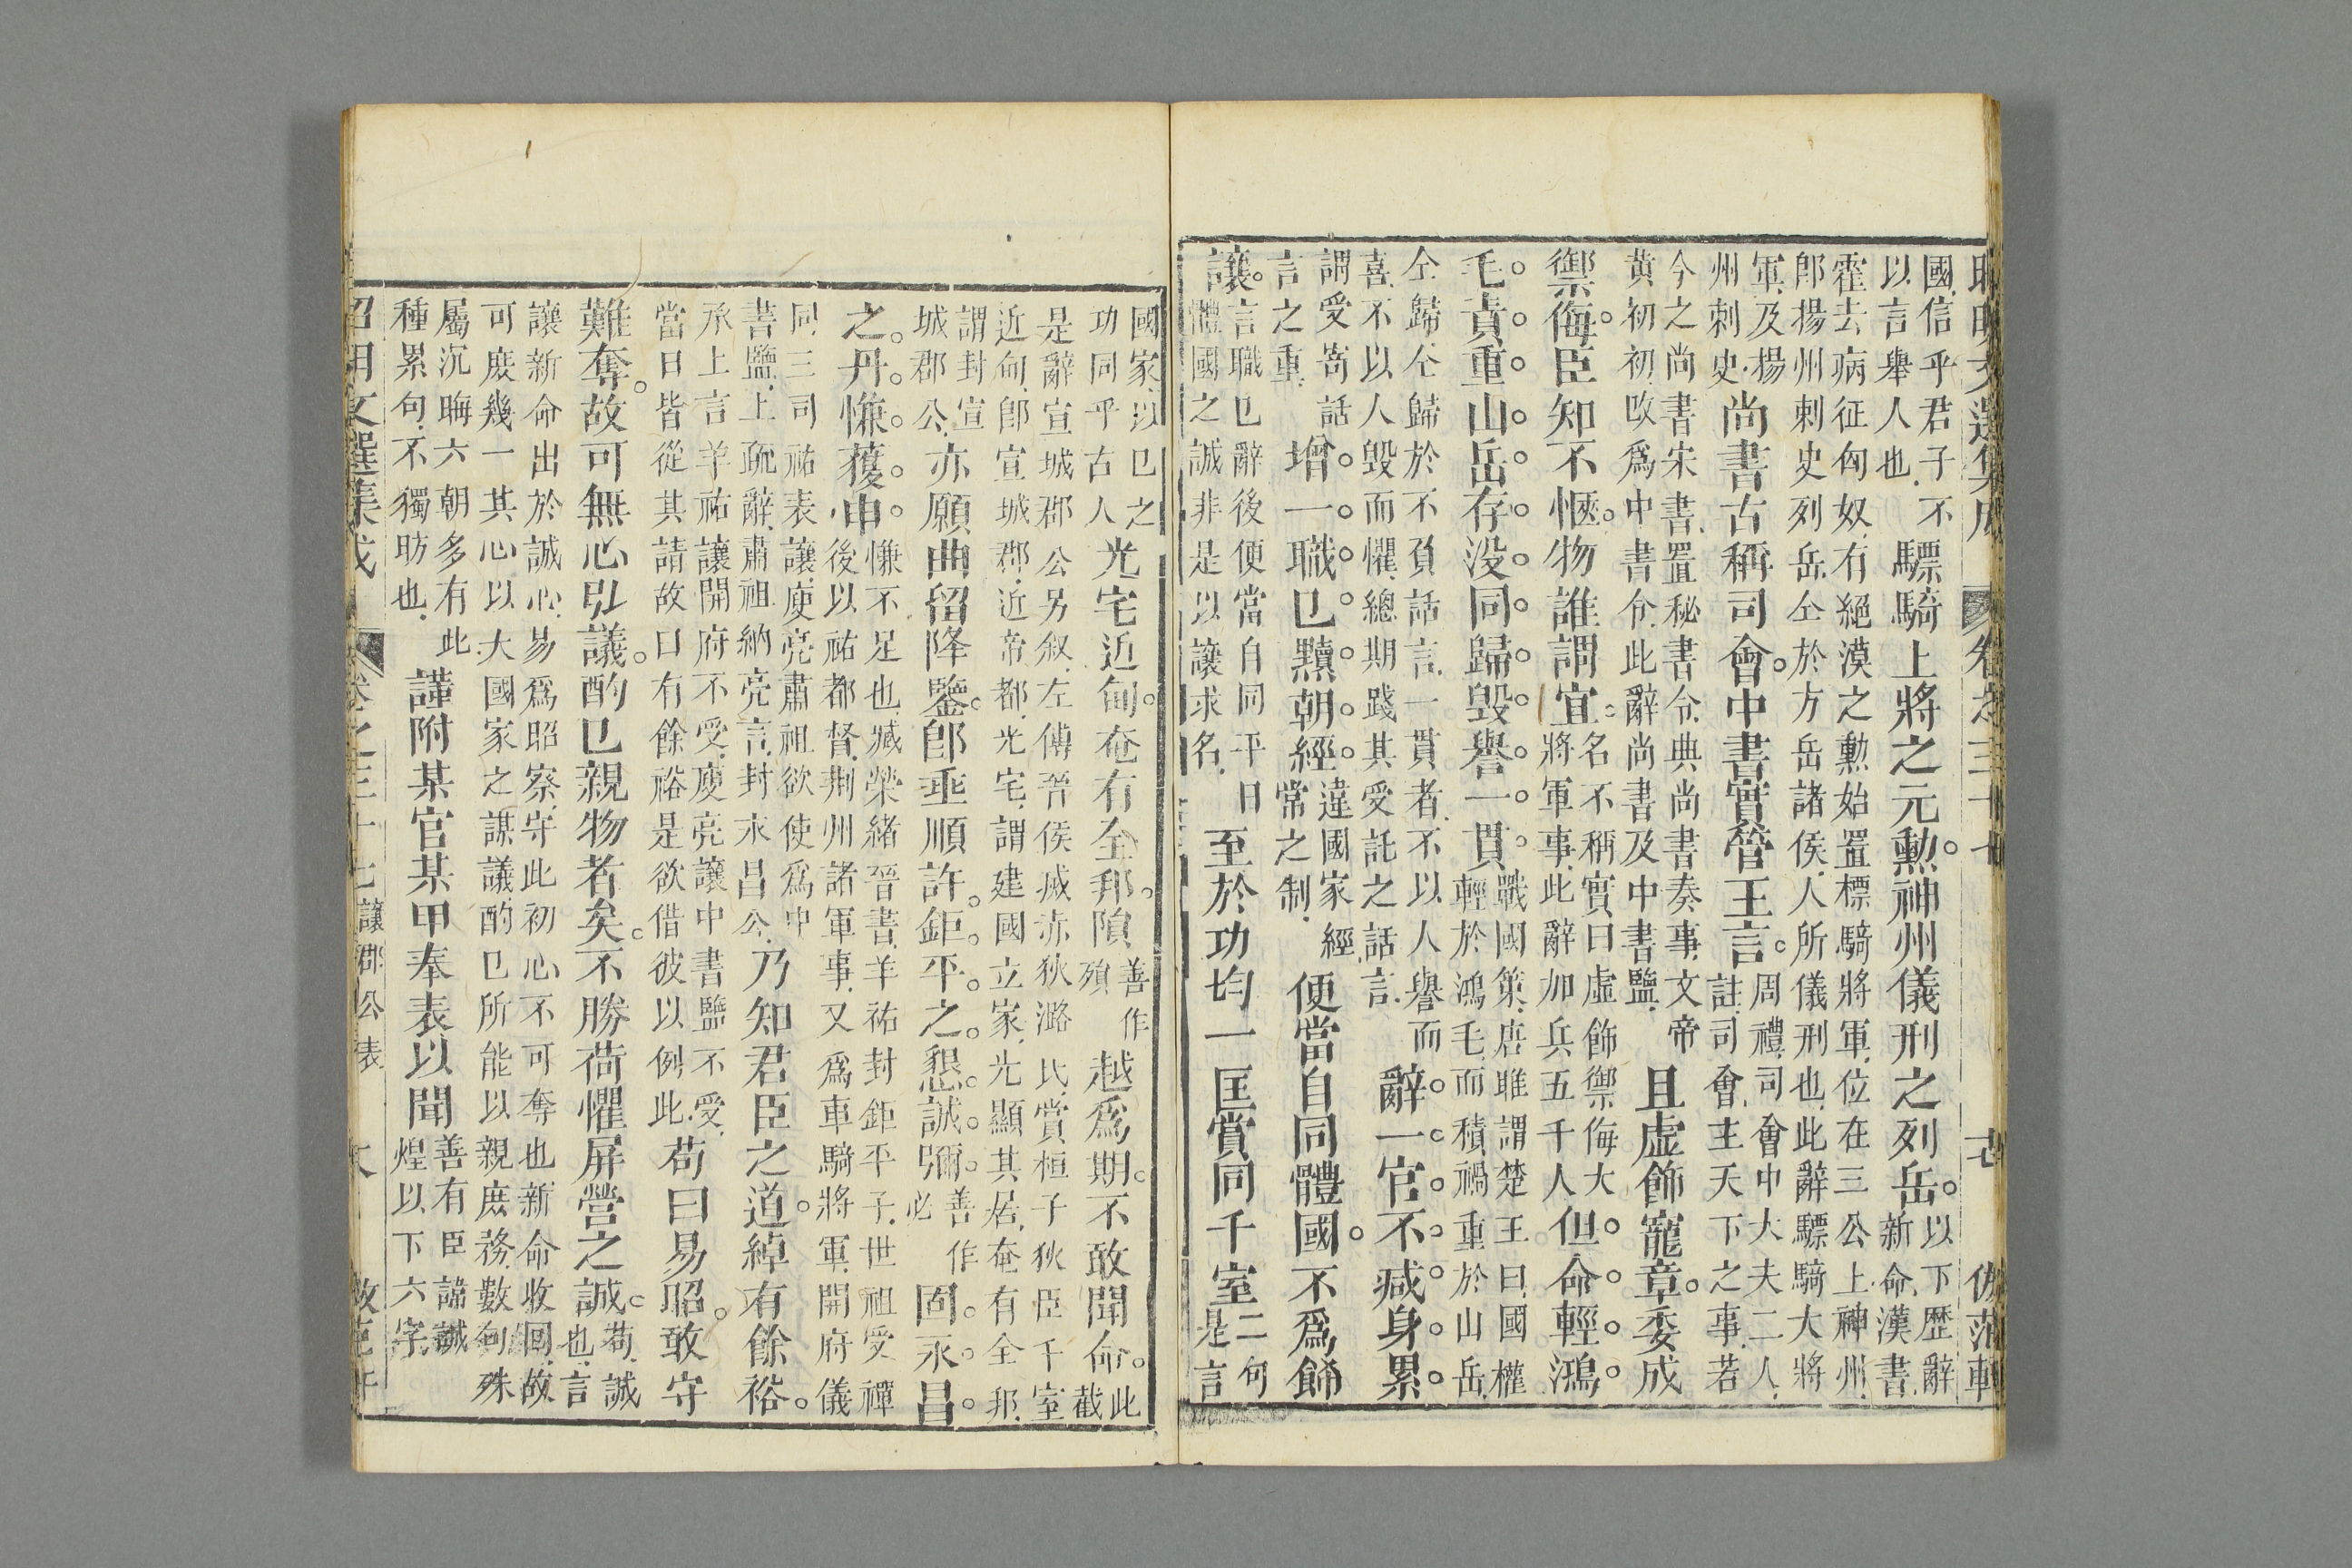 昭明文選集成　卷之三十七　古　仿范軒
國信乎君子不
以言舉人也
驃騎上將之元勲。神州儀刑之列岳。
以下歷辭
新命漢書
霍去病征匈奴有絕漠之勳始置標騎將軍位在三公上神州
郎揚州刺史列岳仝於方岳諸侯人所儀刑也此辭驃騎大將
軍及揚
州刺史
尚書古稱司會。中書實管王言。
周禮司會中大夫二人
註司會主天下之事若
今之尚書宋書置秘書令典尚書奏事文帝
黃初初改爲中書令此辭尚書及中書鹽
且虛飾寵章。委成
禦侮。臣知不愜。物誰謂宜。
名不稱實曰虛飾禦侮大
將軍事此辭加兵五千人
但命輕鴻
毛責重山岳存没同歸毀譽一貫
戰國策唐雎謂楚王曰國權
輕於鴻毛而積禍重於山岳
仝歸仝歸於不負話言一貫者不以人譽而
喜不以人毀而懼總期踐其受託之話言
辭一官不減身累
謂受寄話
言之重
增一職已黷朝經
違國家經
常之制
便當自同體國。不爲飾
讓。
言職已辭後便當自同平日
體國之誠非是以讓求名
至於功均一匡賞同千室
二句
是言
國家以已之
功同乎古人
光宅近甸。奄有全邦。隕
善作
殞
越爲期。不敢聞命。
此
截
是辭宣城郡公另叙左傳晉侯滅赤狄潞氏賞桓子狄臣千室
近甸即宣城郡近帝都光宅謂建國立家光顯其居奄有全邦
謂封宣
城郡公
亦願曲留降鑒。即垂順許。鉅平之懇誠彌
善作
必
固永昌
之丹慊獲申
慊不足也臧榮緒晉書羊祜封鉅平子世祖受禪
後以祜都督荆州諸軍事又爲車騎將軍開府儀
同三司祜表讓庾亮肅祖欲使爲中
書鹽上疏辭肅祖納亮言封永昌公
乃知君臣之道。綽有餘裕。
承上言羊祜讓開府不受庾亮讓中書鹽不受
當日皆從其請故曰有餘裕是欲借彼以例此
苟曰易昭。敢守
難奪。故可無心弘議。酌已親物者矣。不勝荷懼屏營之誠。
苟誠
也言
讓新命出於誠心易爲昭察守此初心不可奪也新命收回故
可庶幾一其心以大國家之謀議酌已所能以親庶務數句殊
屬沉晦六朝多有此
種累句不獨昉也
謹附某官某甲奉表以聞
善有臣諱誠
煌以下六字
昭明文選集成　卷之三十七　讓郡公表